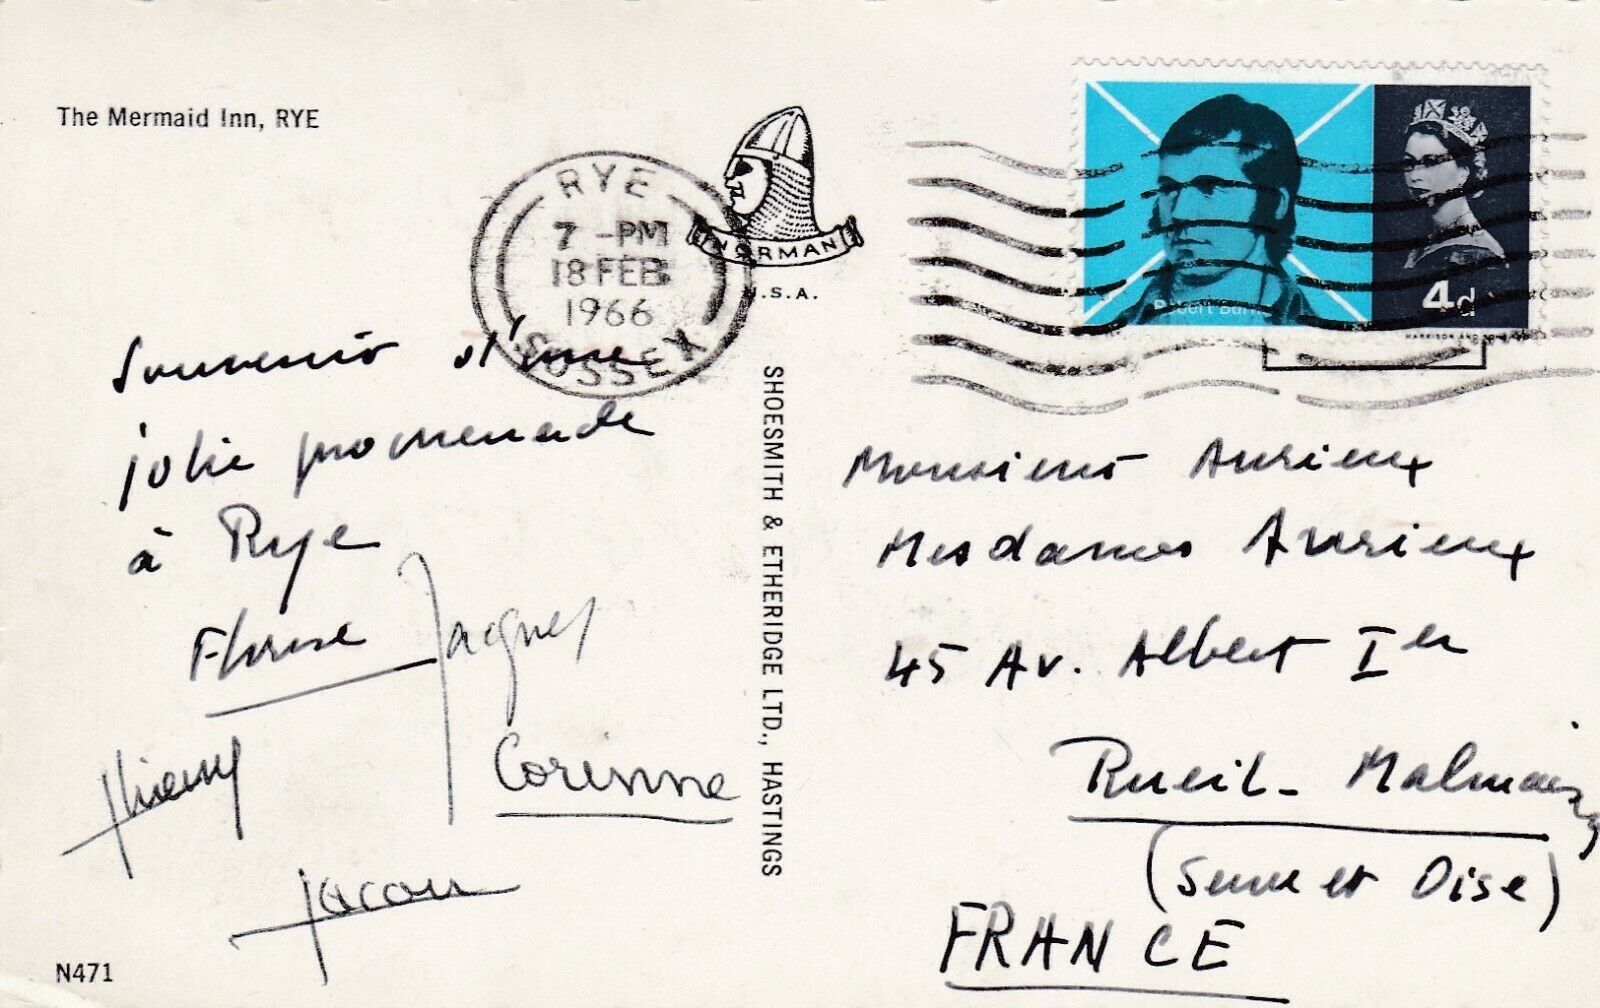 The Mermaid Inn, RYE
RYE
7 -PM
18 FEB
1966
SUSSEX
NORMAN
.S.A.
Robert Burn
4d
HARRISON AND
Souvenir d'une
jolie promenade
à Rye
Jacques
Thierry
Corinne
SHOESMITH & ETHERIDGE LTD., HASTINGS
Monsieur Aurieux
Mesdames Aurieux
45 Av. Albert Ier
Rueil-Malmaison
(Seine et Oise)
FRANCE
N471